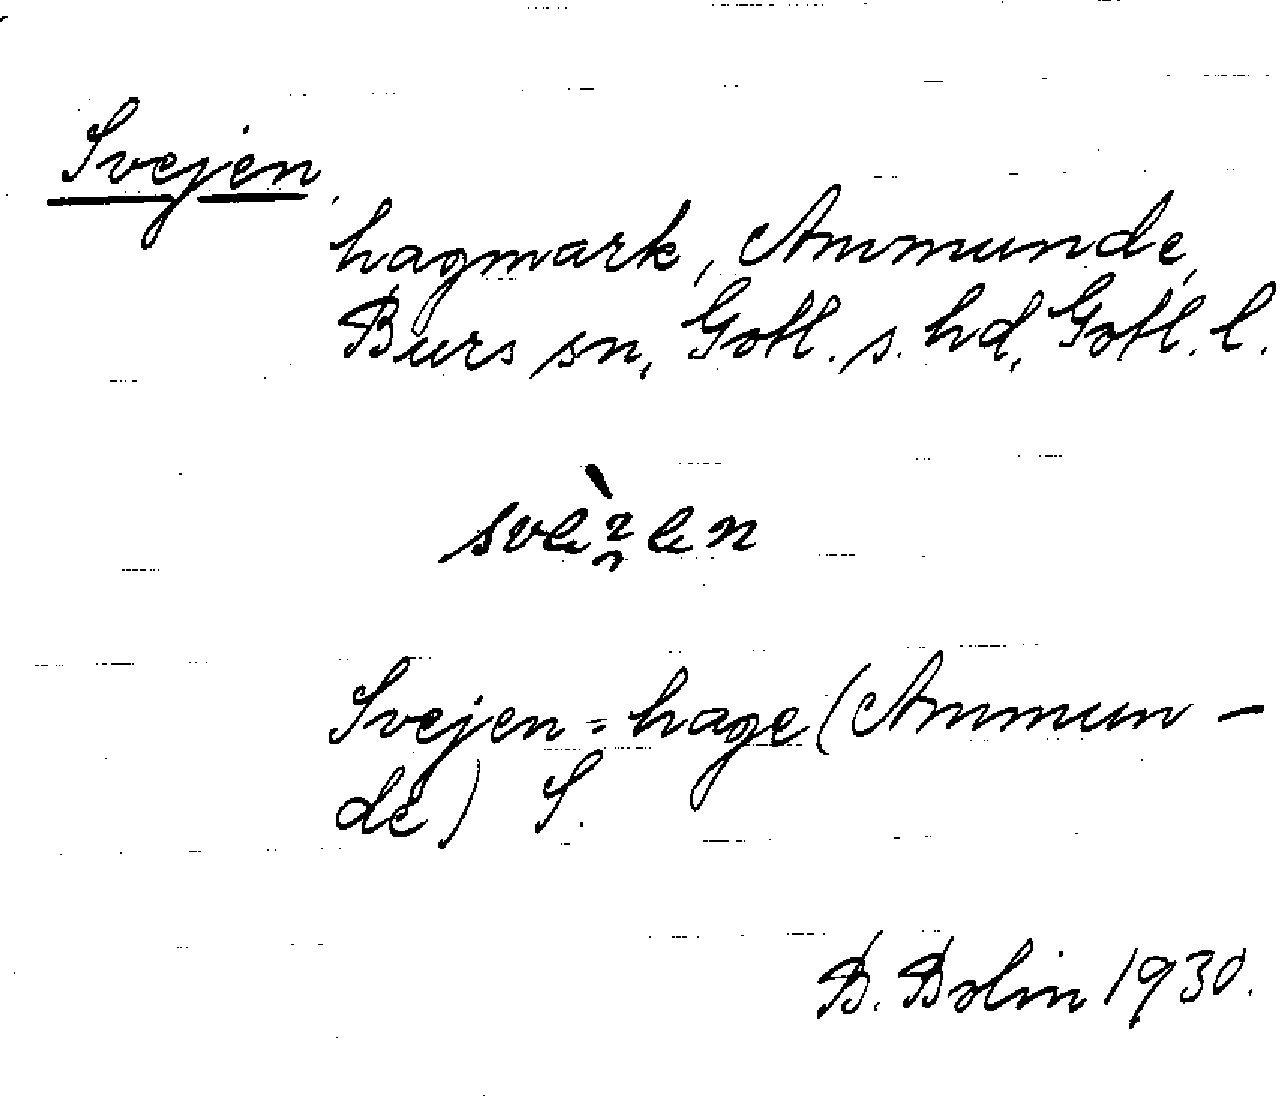 Svejen
hagmark, Ammunde,
Burs sn, Gotl. s. hd, Gotl. l.
Svejen-hage (Ammun-
de) S.
B. Bolin 1930.